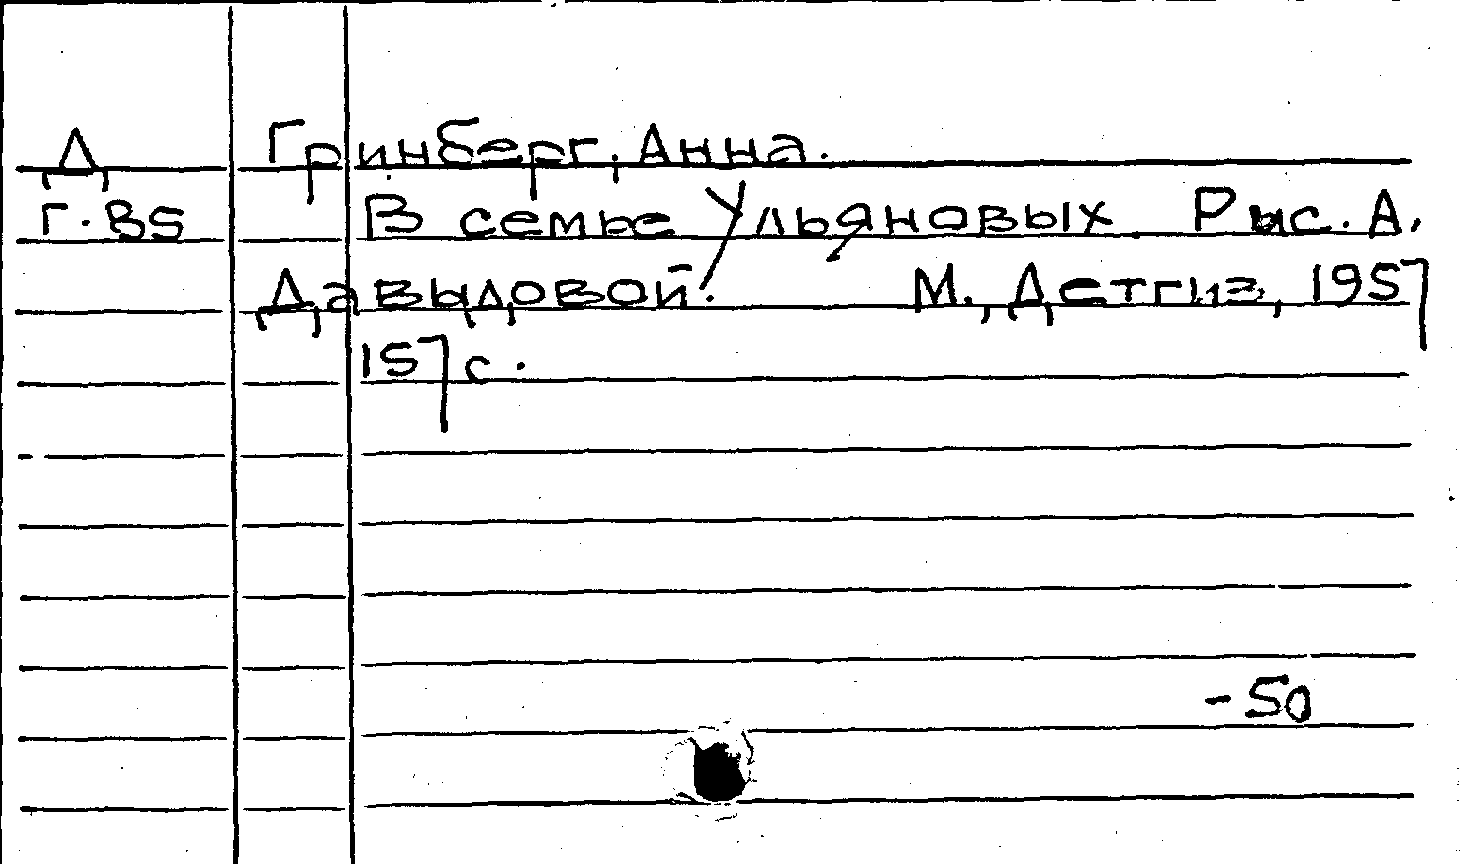 Д Гринберг, Анна.
Г.85 В семье Ульяновых. Рыс. А.
Давыдовой. М., Детгиз, 1957
157 с.
-50